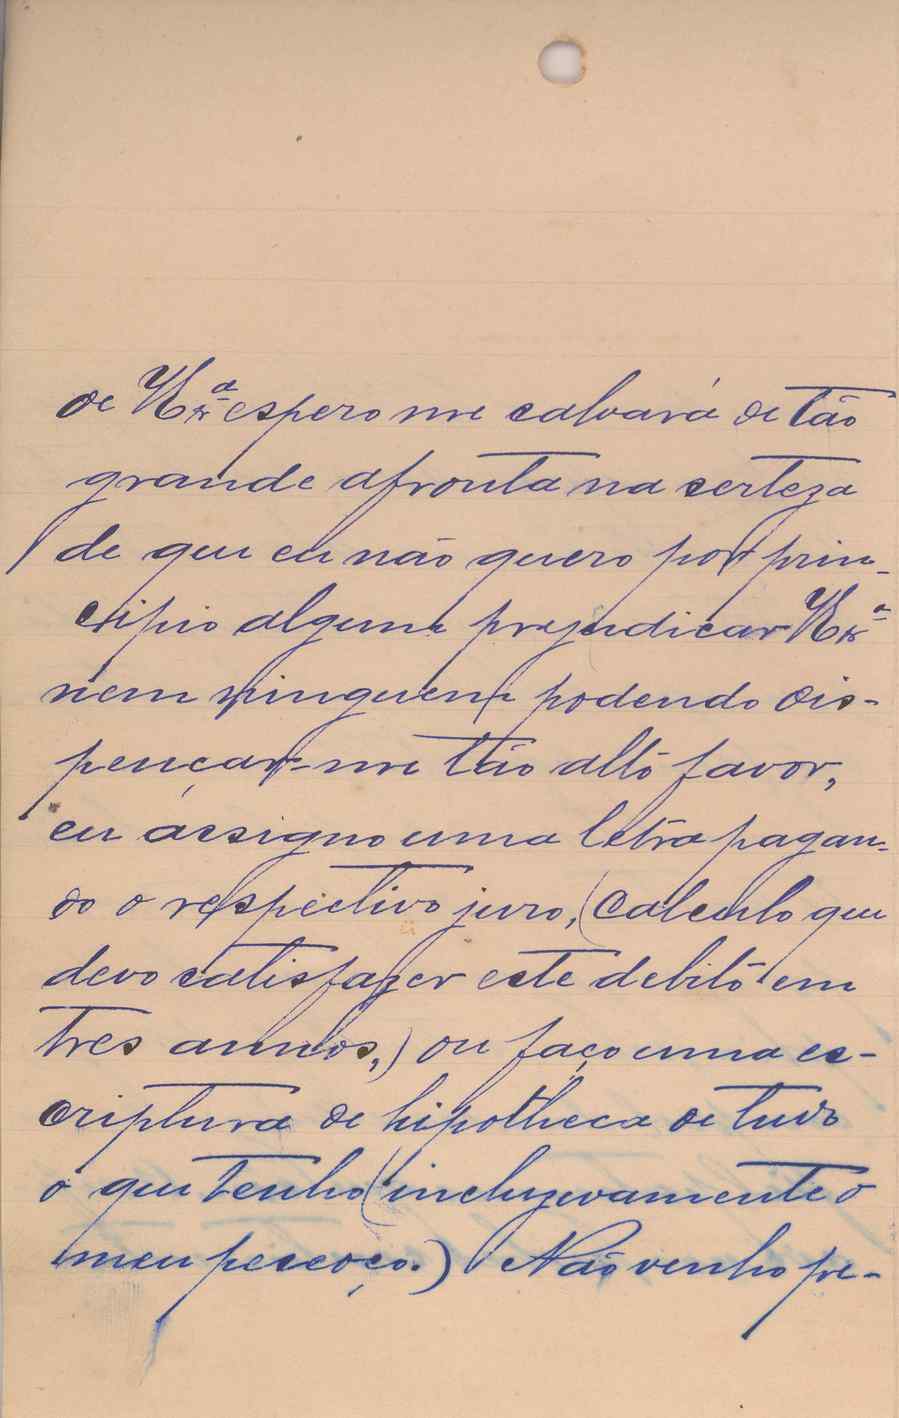 de V. Exª espero me salvará de tão
grande afronta na serteza
de que eu não quero por prin-
cipio algum prejudicar V. Exª
nem ninguem podendo dis-
pençar-me tão alto favor,
eu ássigno uma letra pagan-
do o respectivo juro, (calculo que
devo satisfazer este debito em
tres annos,) ou faço uma es-
criptura de hipotheca de tudo
o que tenho (incluzevamente o
meu pescoço.) Não venho pe-